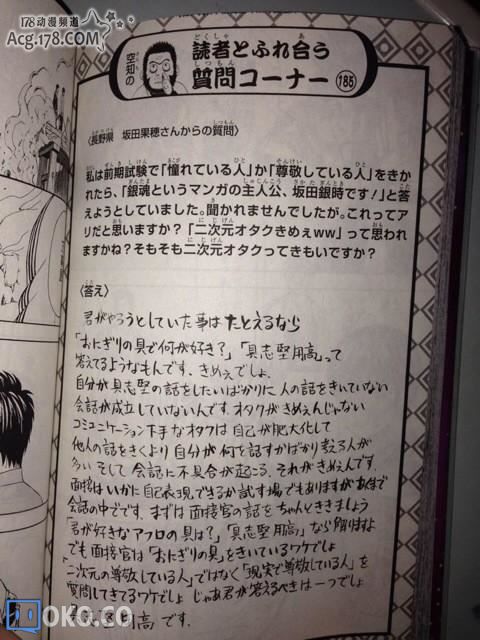 178动漫频道
Acg.178.com
空知の
読者とふれ合う
質問コーナー
185
〈長野県 坂田果穂さんからの質問〉
私は前期試験で「憧れている人」か「尊敬している人」をきか
れたら、「銀魂というマンガの主人公、坂田銀時です!」と答
えようとしていました。聞かれませんでしたが。これってア
リだと思いますか?「二次元オタクきめぇww」って思われ
ますかね?そもそも二次元オタクってきもいですか?
〈答え〉
君がやろうとしていた事はたとえるなら
「おにぎりの具で何が好き?」「具志堅用高」って
答えてるようなもんです。きめぇでしょ。
自分が具志堅の話をしたいばかりに人の話をきいていない
会話が成立していないんです。オタクがきめぇんじゃない
コミュニケーション下手なオタクは自己が肥大化して
他人の話をきくより自分が何て話すかばかり考える人が
多いそして会話に不具合が起こる。それがきめぇんです。
面接はいかに自己表現できるか試す場でもありますがあくまで
会話の中でです。まずは面接官の話をちゃんとききましょう
「君が好きなアフロの具は?」「具志堅用高」なら解りますよ
でも面接官は「おにぎりの具」をきいているワケでしょ
「二次元の尊敬している人」ではなく「現実で尊敬している人」を
質問してきてるワケでしょ じゃあ君が答えるべきは一つでしょ
具志堅用高です。
OKO.CO